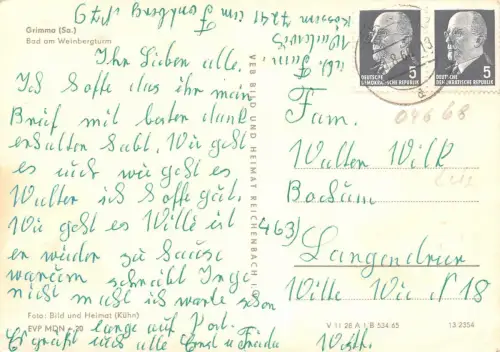 Grimma (Sa.)
Bad am Weinbergturm
Ihr Lieben alle.
Ich hoffe das ihr mein
Brief mit besten dank
erhalten habt. Wie geht
es euch wie geht es
Walter ich hoffe gut.
Wie geht es Wille ist
er wieder zu Hause
warum schreibt Inge
nicht mehr ich warte schon
lange auf Post.
Es grüßt euch alle Ernst u Frieda
Foto: Bild und Heimat (Kühn)
EVP MDN -.20
VEB BILD UND HEIMAT REICHENBACH i.V.
5
DEUTSCHE DEMOKRATISCHE REPUBLIK
5
DEUTSCHE DEMOKRATISCHE REPUBLIK
Fam.
Walter Wilk
Bochum
463)
Langendreer
Witte Wie N 18
Westf.
V 11 28 A 1 B 534 65
13 2354